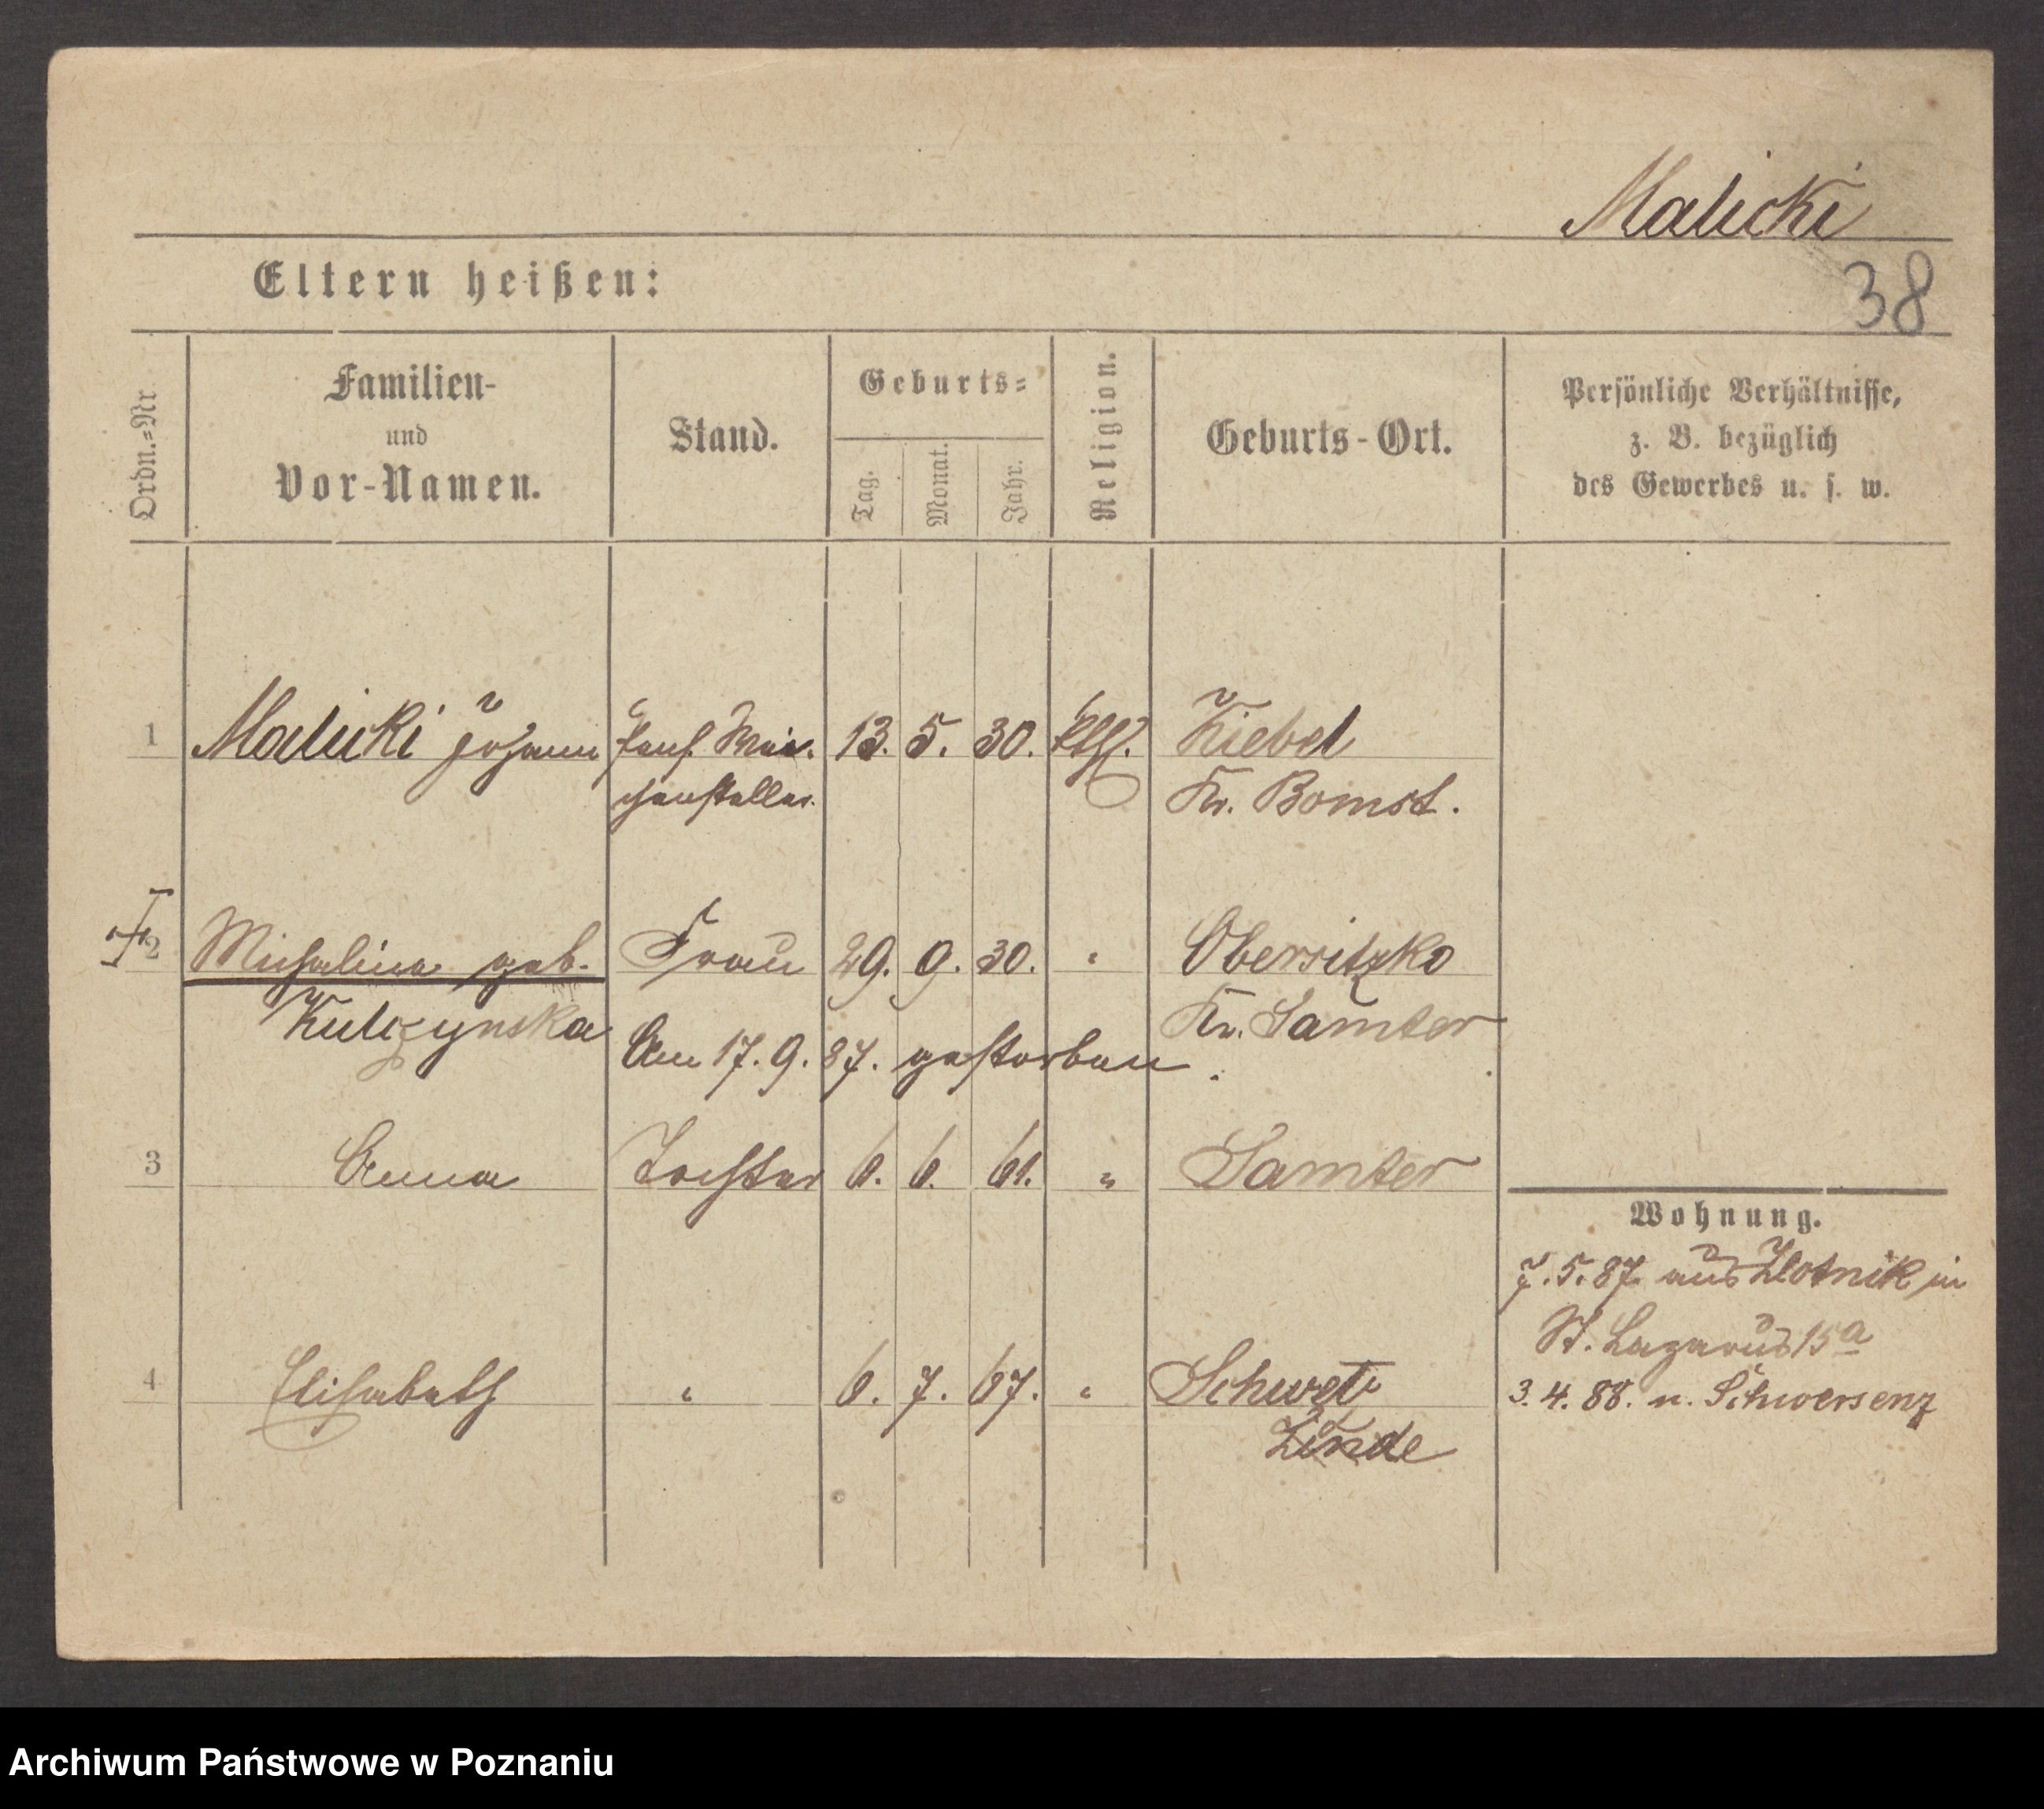 Malicki
Eltern heißen:
38
Ordn.=Nr.
Familien-
und
Vor-Namen.
Stand.
Geburts=
Tag.
Monat.
Jahr.
Religion.
Geburts-Ort.
Persönliche Verhältnisse,
z. B. bezüglich
des Gewerbes u. s. w.
1 Malicki Johann pens. Wei- 13. 5. 30. kthl. Kiebel
chensteller Kr. Bomst.
2 Michalina geb. Frau 29. 9. 30. " Obersitzko
Kulczynska Kr. Samter
Am 17. 9. 87. gestorben.
3 Anna Tochter 6. 6. 61. " Samter
Wohnung.
7. 5. 87. aus Zlotnik in
St. Lazarus 15a
4 Elisabeth " 6. 7. 67. "
3. 4. 88. n. Schwersenz
Linde
Archiwum Państwowe w Poznaniu